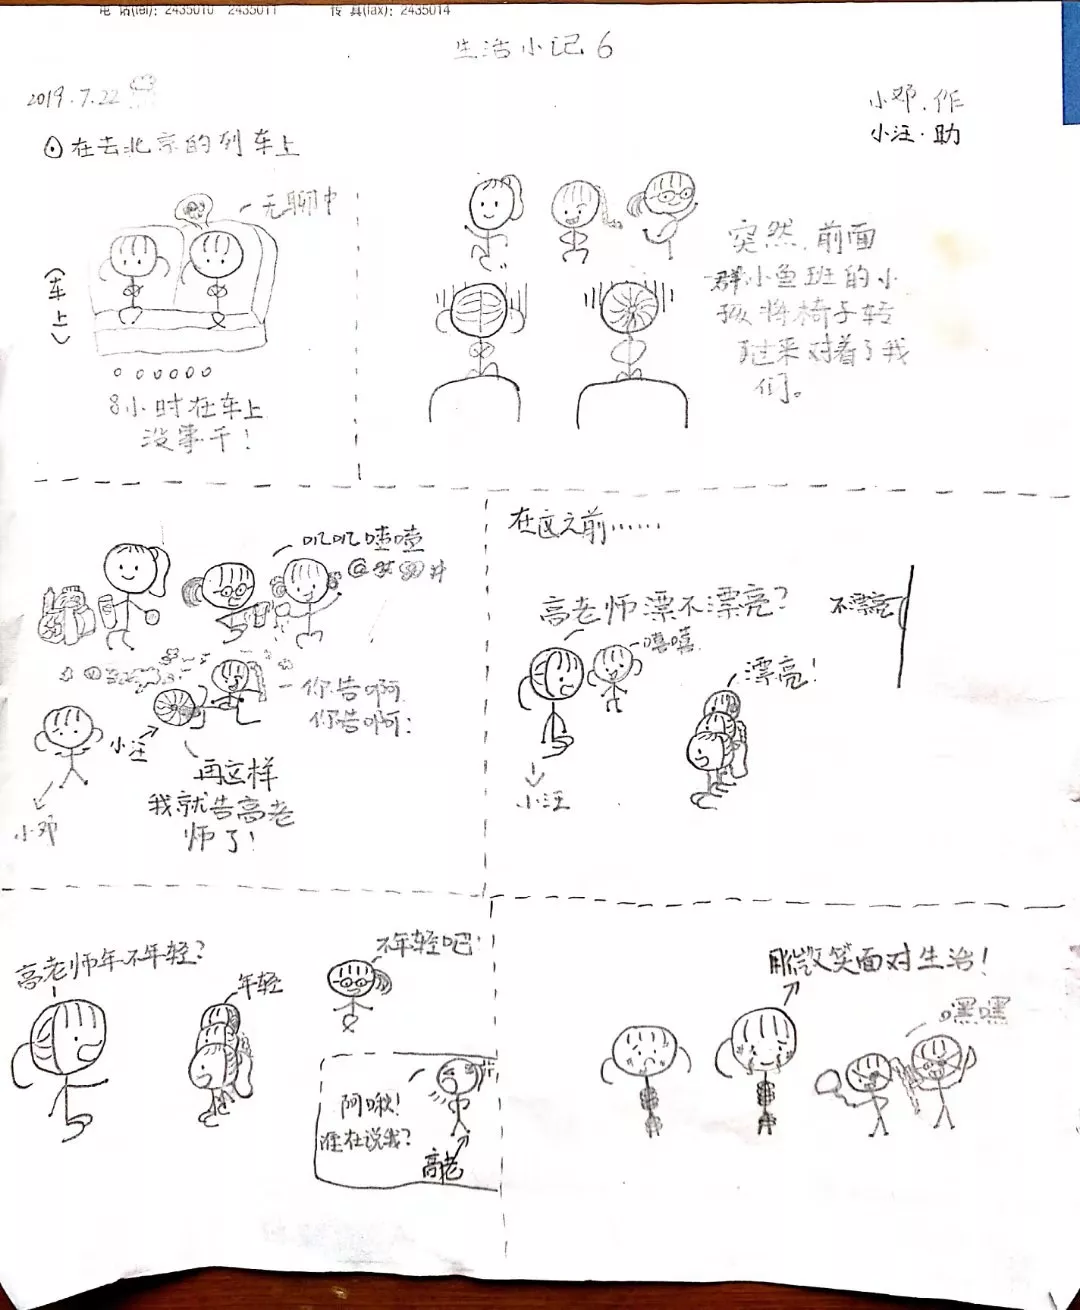 电 话(tel): 2435010 2435011 传 真(fax): 2435014
生活小记6
2019.7.22
小邓.作
小汪.助
⊙在去北京的列车上
无聊中
(车上)
8小时在车上
没事干!
突然,前面
一群小鱼班的小
孩将椅子转
过来对着了我
们。
叽叽喳喳
你告啊
你告啊!
小汪
再这样
我就告高老
师了!
小邓
在这之前……
高老师漂不漂亮?
不漂亮
嘻嘻
漂亮!
小汪
高老师年不年轻?
年轻
不年轻吧!
阿嚏!
谁在说我?
高老
用微笑面对生活!
嘿嘿